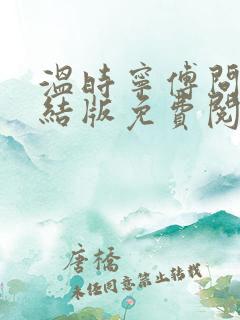 温时宁傅問
結版免費閱
唐橋
未经同意禁止转载